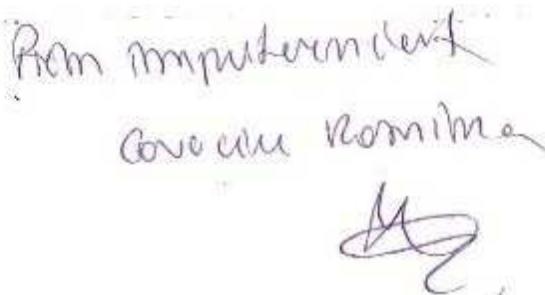 Prin imputernicit
Covaciu Romina